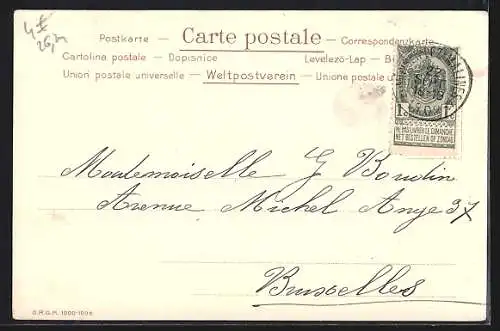 4 E
Postkarte — Carte postale — Correspondenzkarte
Cartolina postale — Dopisnice Levelező-Lap — B
Union postale universelle — Weltpostverein — Unione postale u
1c 1c
NE PAS LIVRER LE DIMANCHE
NIET BESTELLEN OP ZONDAG
Mademoiselle G Boudin
Avenue Michel Ange 37
Bruxelles